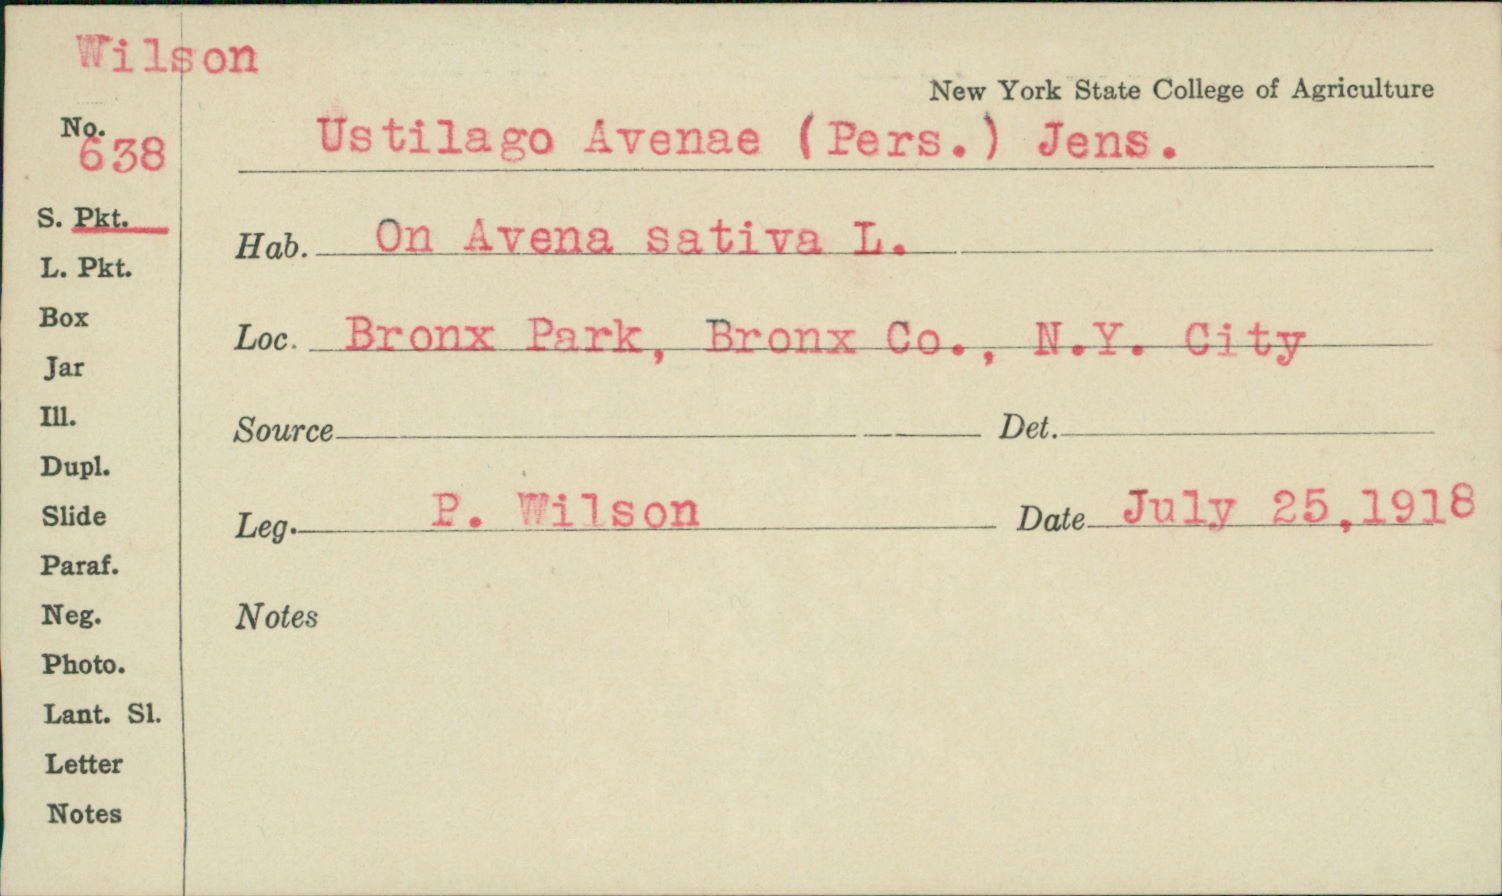 Wilson
New York State College of Agriculture
No. 638
Ustilago Avenae (Pers.) Jens.
S. Pkt.
Hab. On Avena sativa L.
L. Pkt.
Box
Loc. Bronx Park, Bronx Co., N.Y. City
Jar
Ill.
Source Det.
Dupl.
Slide
Leg. P. Wilson Date July 25,1918
Paraf.
Neg.
Notes
Photo.
Lant. Sl.
Letter
Notes